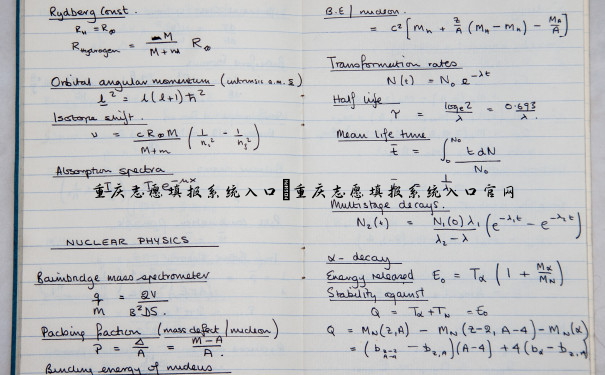 Rydberg Const.
R_H = R_∞
R_Hydrogen = M / (M + m) R_∞
Orbital angular momentum (intrinsic a.m. s)
l² = l(l+1)ħ²
Isotope shift.
ν = c R_∞ M / (M+m) (1/n₁² - 1/n₂²)
Absorption spectra
重庆志愿填报系统入口 重庆志愿填报系统入口官网
NUCLEAR PHYSICS
Bainbridge mass spectrometer
q/m = 2V / B²DS.
Packing fraction (mass defect / nucleon)
P = Δ/A = (M-A)/A.
Binding energy of nucleus
B.E / nucleon.
= c² [M_n + Z/A (M_H - M_n) - M_A/A]
Transformation rates
N(t) = N₀ e^-λt
Half life
τ = log_e 2 / λ = 0.693 / λ.
Mean life time
t̄ = ∫₀^N₀ t dN / N₀
Multistage decays.
N₂(t) = N₁(0) λ₁ / (λ₂ - λ) (e^-λ₁t - e^-λ₂t)
α - decay
Energy released E₀ = T_α (1 + M_α/M_N)
Stability against
Q = T_α + T_N = E₀
Q = M_N(Z,A) - M_N(Z-2, A-4) - M_N(α)